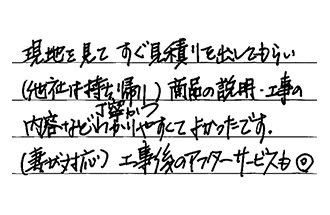 現地を見て すぐ見積りを出してもらい
(他社は持ち帰り) 商品の説明・工事の
丁寧かつ
内容などわかりやすくてよかったです。
(妻が対応) 工事後のアフターサービスも◎